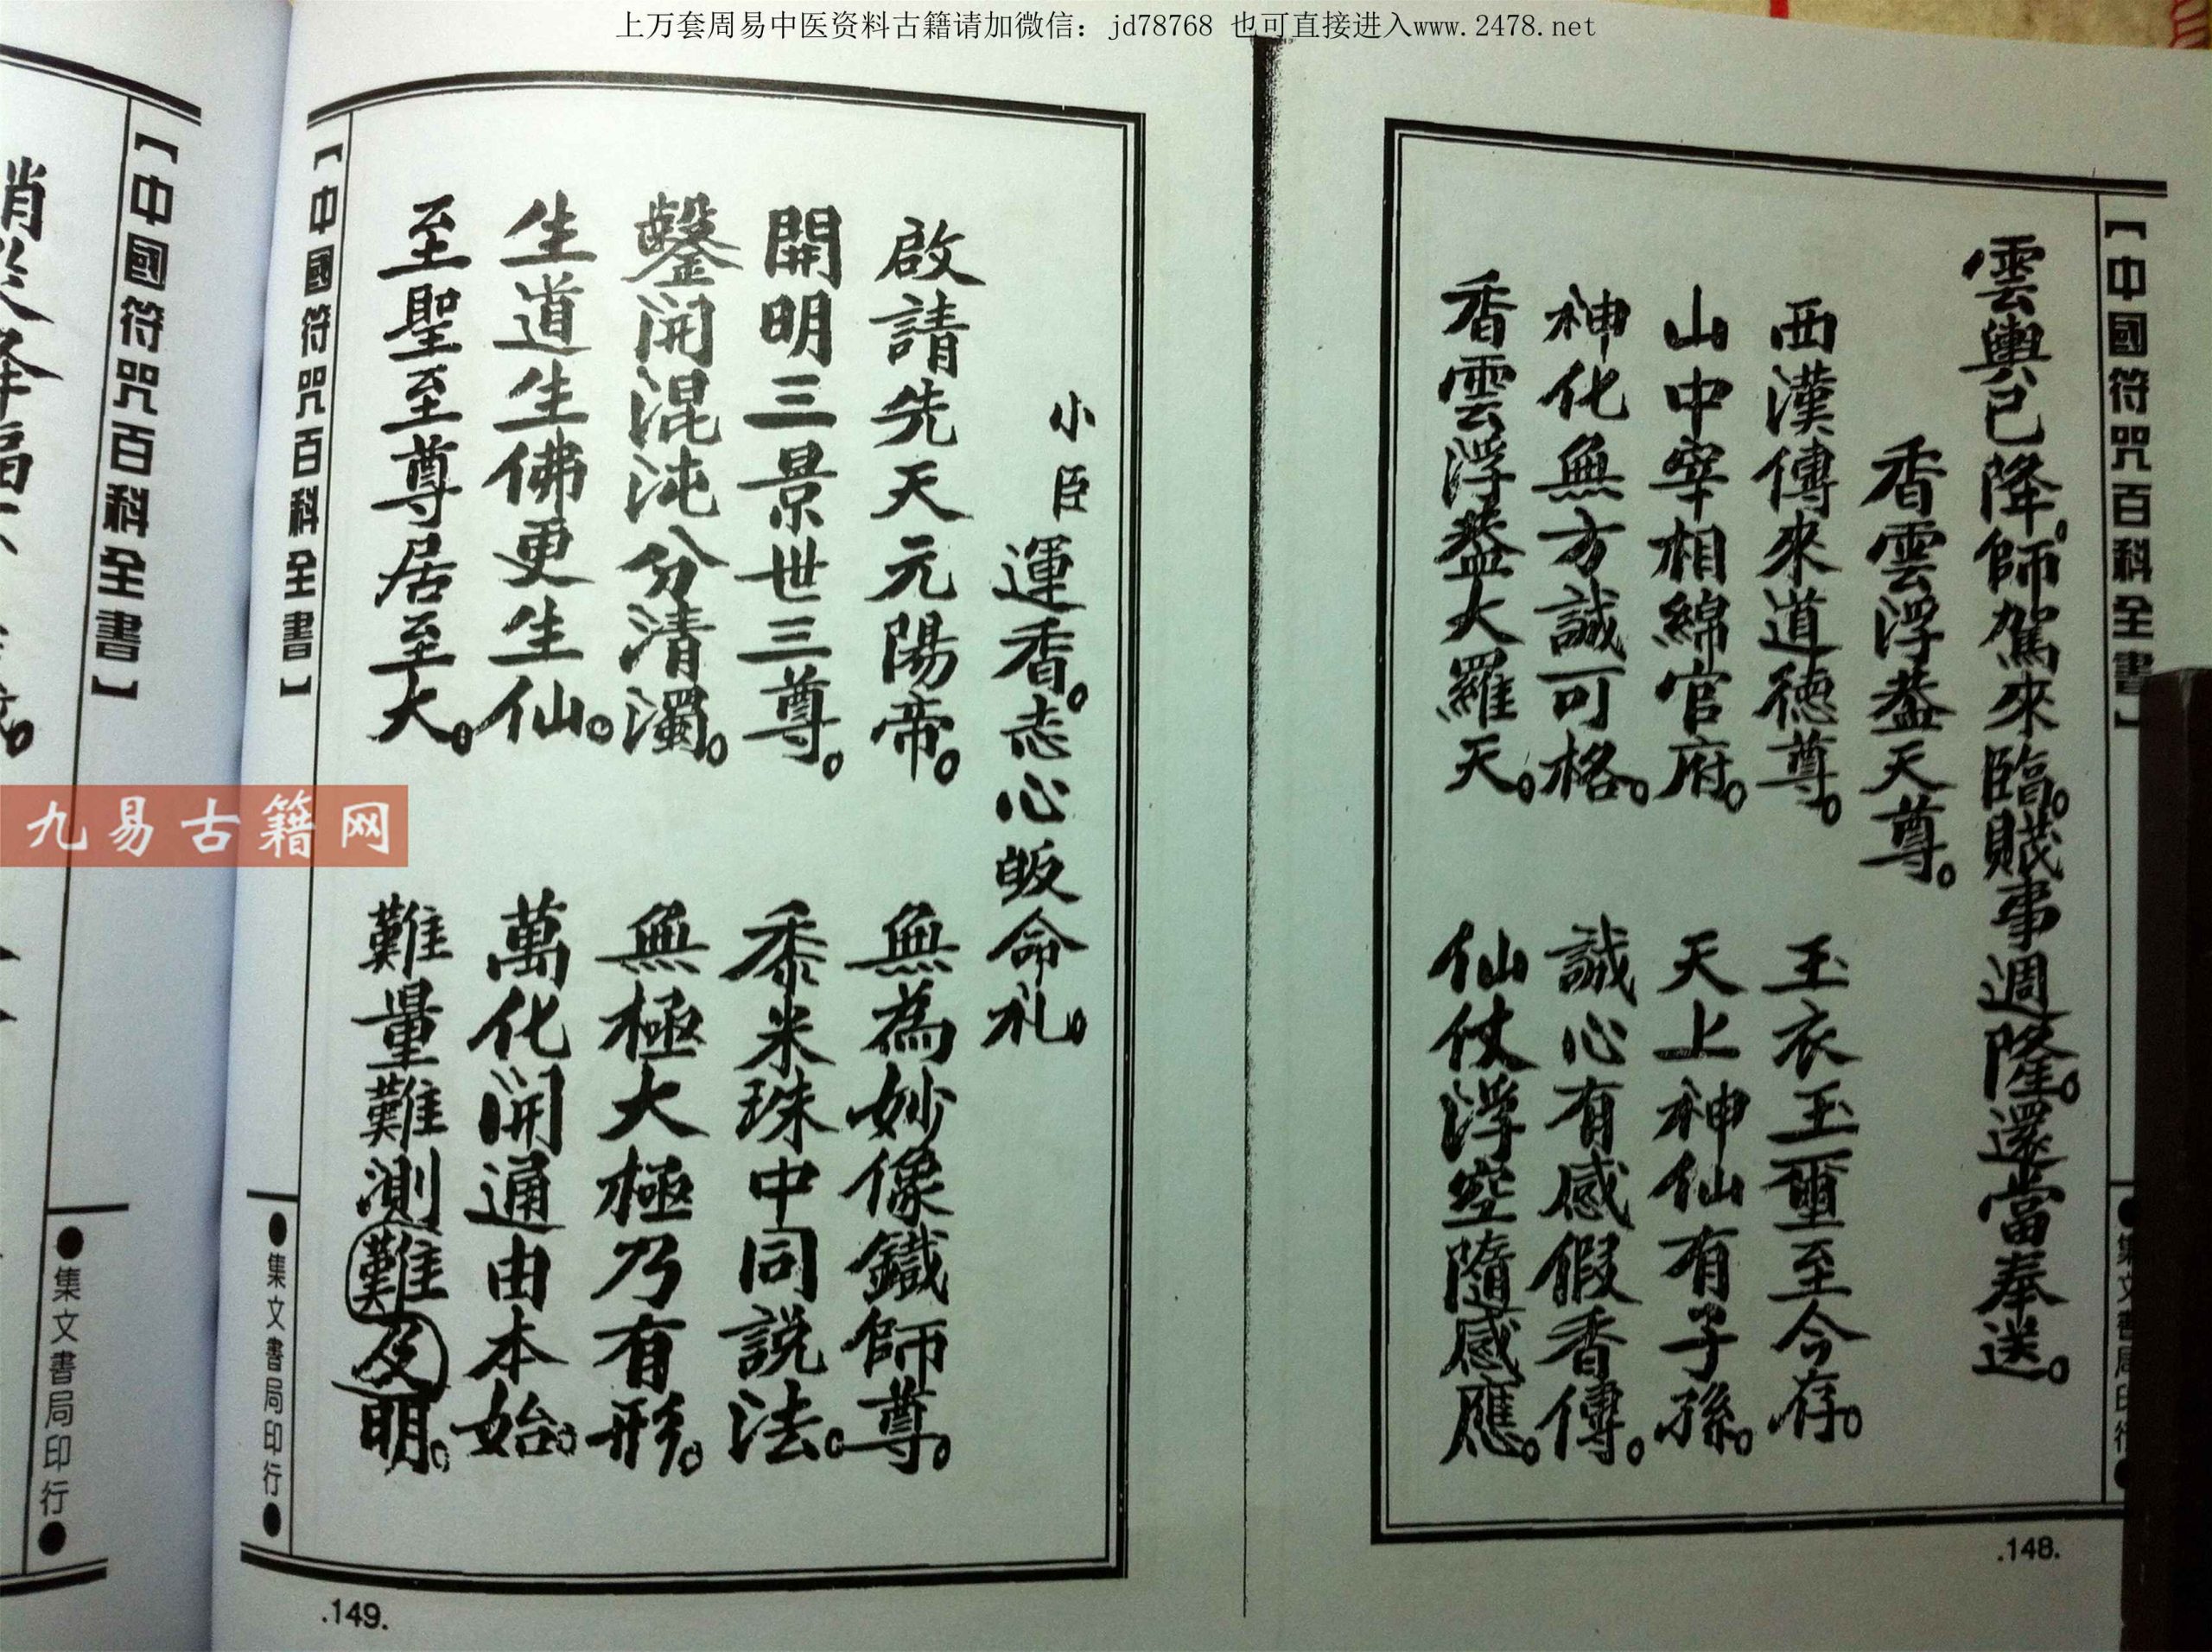 上万套周易中医资料古籍请加微信：jd78768 也可直接进入www.2478.net
【中國符咒百科全書】
雲輿已降。師駕來臨。賤事週隆。還當奉送。
香雲浮蓋天尊。
西漢傳來道德尊。玉衣玉璽至今存。
山中宰相綿官府。天上神仙有子孫。
神化無方誠可格。誠心有感假香傳。
香雲浮蓋大羅天。仙仗浮空隨感應。
.148.
小臣運香。志心皈命礼。
啟請先天元陽帝。無為妙像鐵師尊。
開明三景世三尊。黍米珠中同説法。
鑿開混沌分清濁。無極大極乃有形。
生道生生佛更生仙。萬化開通由本始。
至聖至尊居至大。難量難測難及明。
【中國符咒百科全書】
●集文書局印行●
.149.
【中國符咒百科全書】
●集文書局印行●
九易古籍网